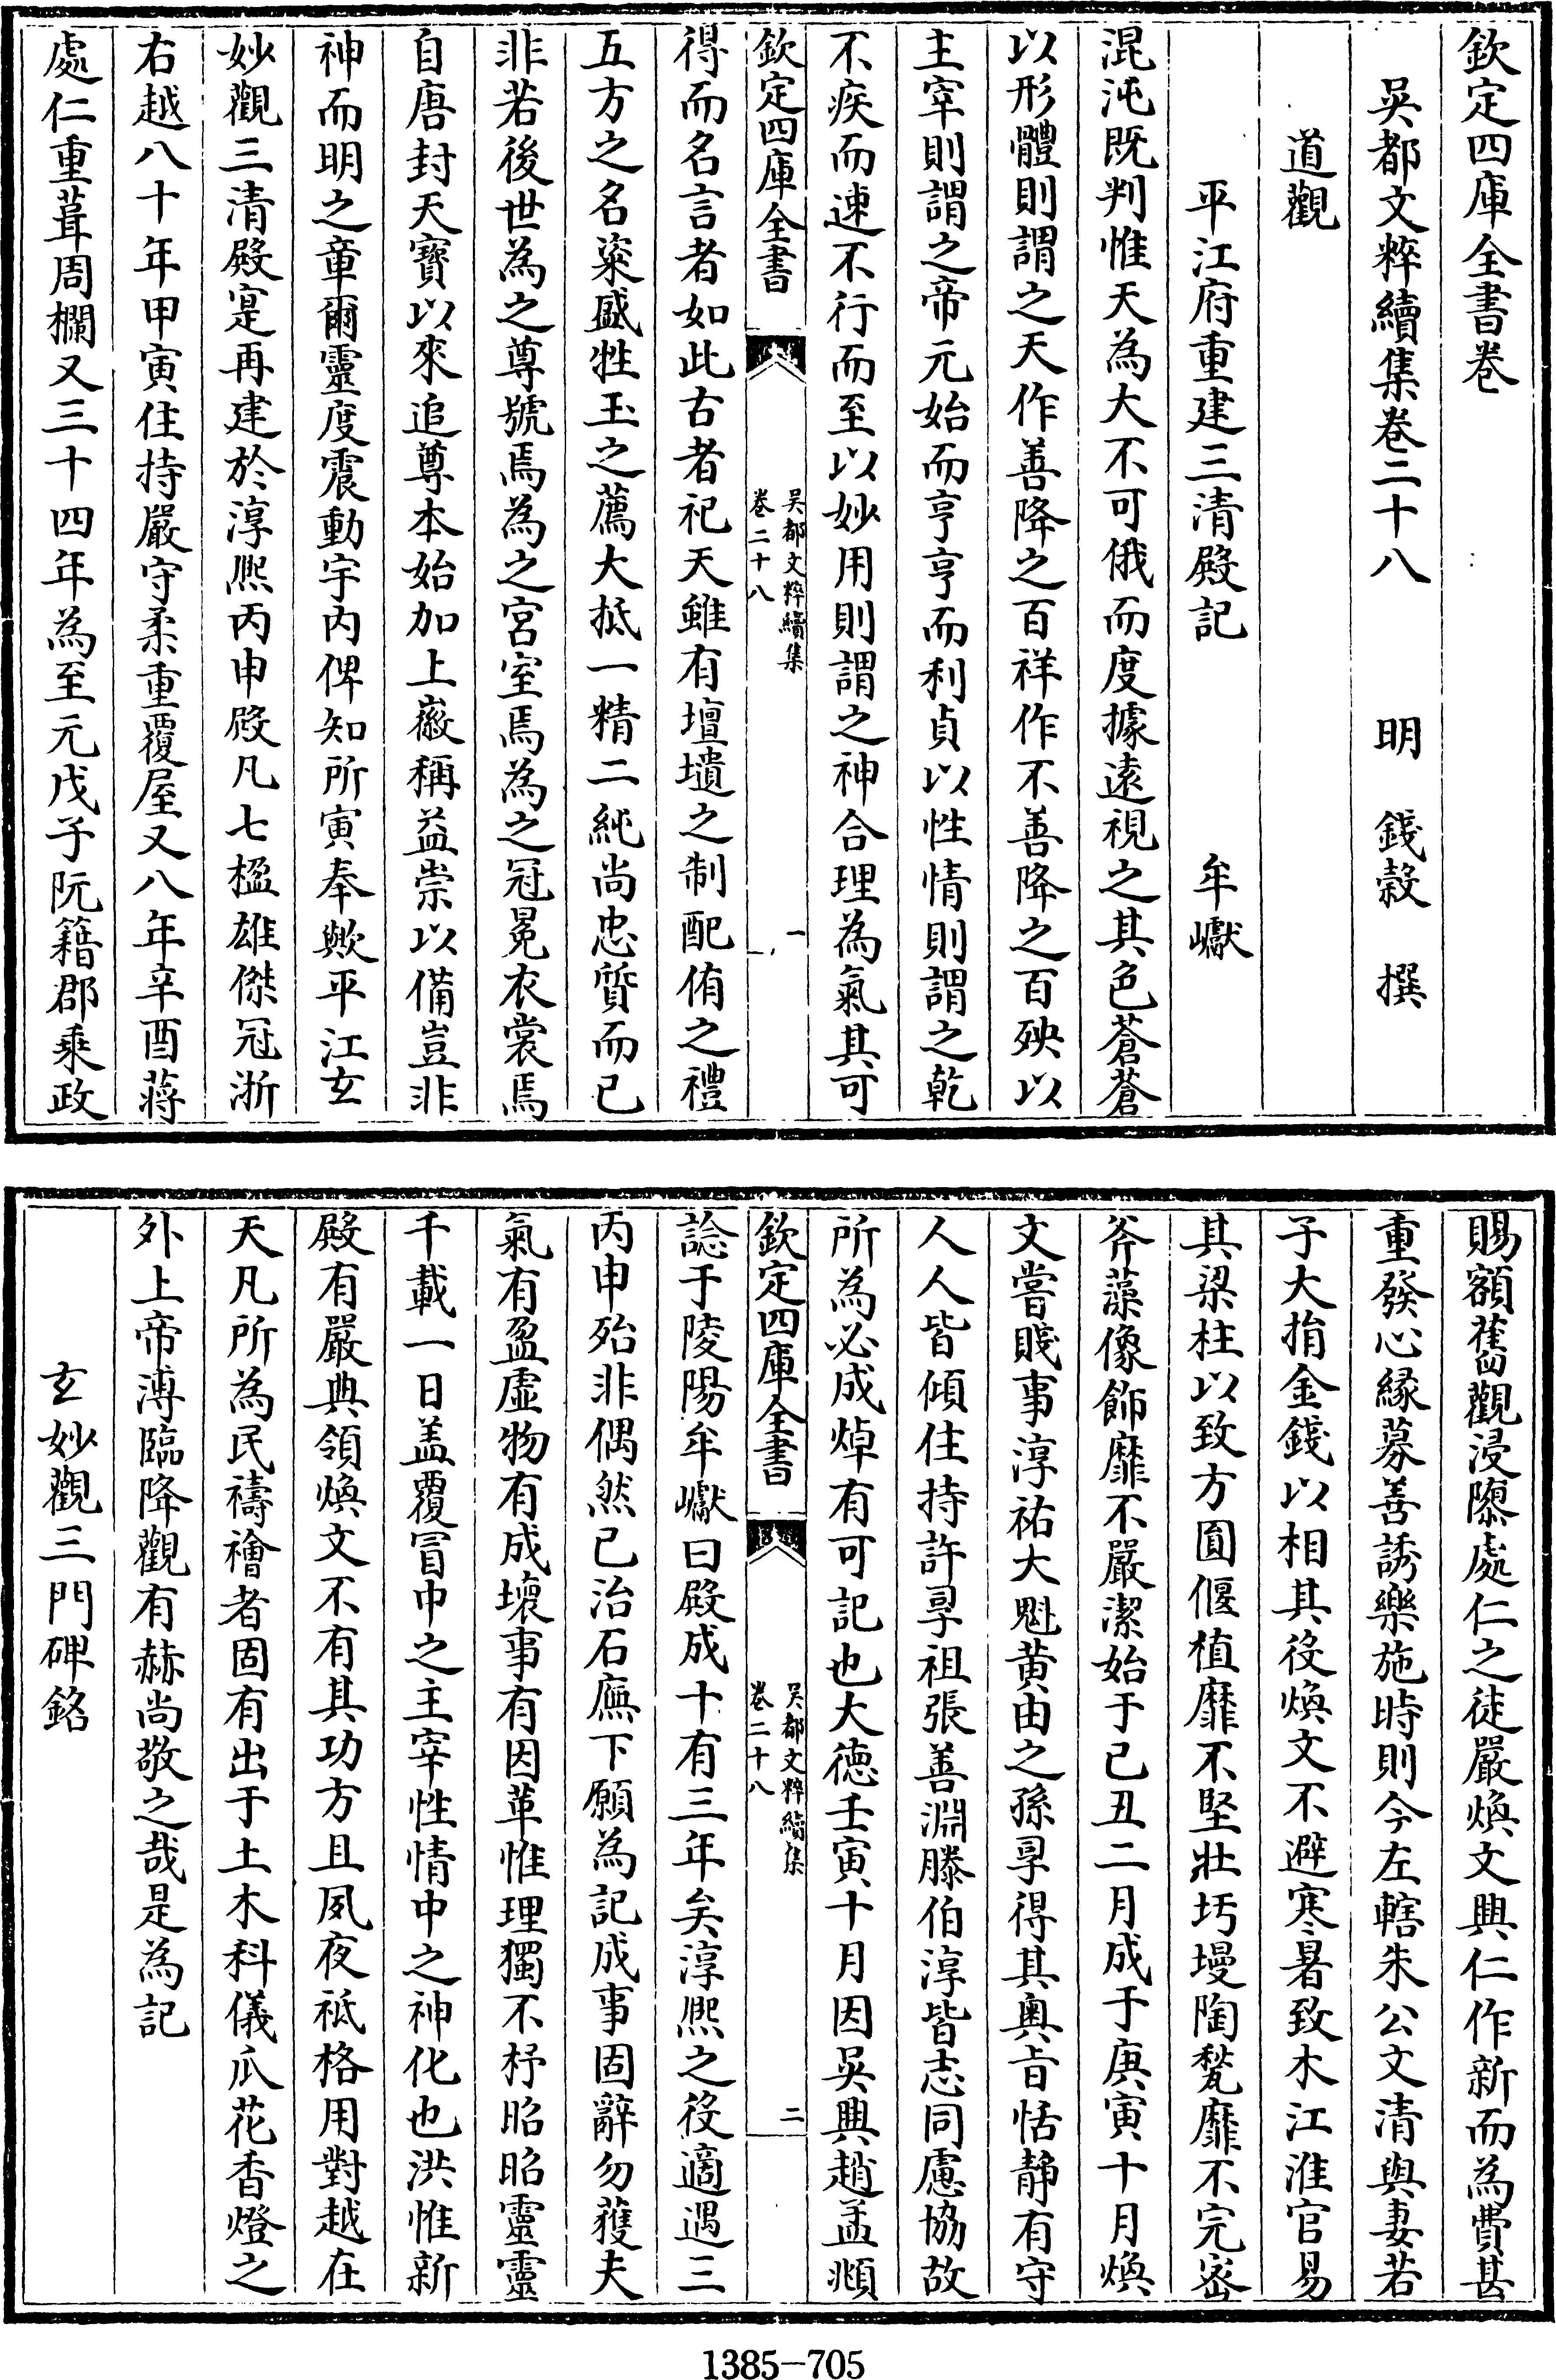 欽定四庫全書卷
吳都文粹續集卷二十八 明 錢榖 撰
道觀
平江府重建三清殿記 牟巘
混沌既判惟天為大不可俄而度據逺視之其色蒼蒼
以形體則謂之天作善降之百祥作不善降之百殃以
主宰則謂之帝元始而亨亨而利貞以性情則謂之乾
不疾而速不行而至以妙用則謂之神合理為氣其可
欽定四庫全書 吳都文粹續集 卷二十八 一
得而名言者如此古者祀天雖有壇壝之制配侑之禮
五方之名粢盛牲玉之薦大抵一精二純尚忠質而已
非若後世為之尊號焉為之宫室焉為之冠冕衣裳焉
自唐封天寳以來追尊本始加上徽稱益崇以備豈非
神而明之章爾靈度震動宇内俾知所寅奉歟平江玄
妙觀三清殿寔再建於淳熙丙申殿凡七楹雄傑冠浙
右越八十年甲寅住持嚴守柔重覆屋又八年辛酉蔣
處仁重葺周欄又三十四年為至元戊子阮籍郡乘政
賜額舊觀浸隳處仁之徒嚴煥文興仁作新而為費甚
重發心緣募善誘樂施時則今左轄朱公文清與妻若
子大捐金錢以相其役煥文不避寒暑致木江淮官易
其梁柱以致方圓偃植靡不堅壯圬墁陶甃靡不完密
斧藻像飾靡不嚴潔始于己丑二月成于庚寅十月煥
文嘗賤事淳祐大魁黄由之孫孚得其奥旨恬静有守
人人皆傾住持許孚祖張善淵滕伯淳皆志同慮協故
所為必成焯有可記也大德壬寅十月因吳興趙孟頫
欽定四庫全書 吳都文粹續集 卷二十八 二
諗于陵陽牟巘曰殿成十有三年矣淳熙之役適遇三
丙申殆非偶然已治石廡下願為記成事固辭勿獲夫
氣有盈虚物有成壞事有因革惟理獨不杼昭昭靈靈
千載一日盖覆冒中之主宰性情中之神化也洪惟新
殿有嚴典領煥文不有其功方且夙夜祗格用對越在
天凡所為民禱禬者固有出于土木科儀瓜花香燈之
外上帝溥臨降觀有赫尚敬之哉是為記
玄妙觀三門碑銘
1385-705